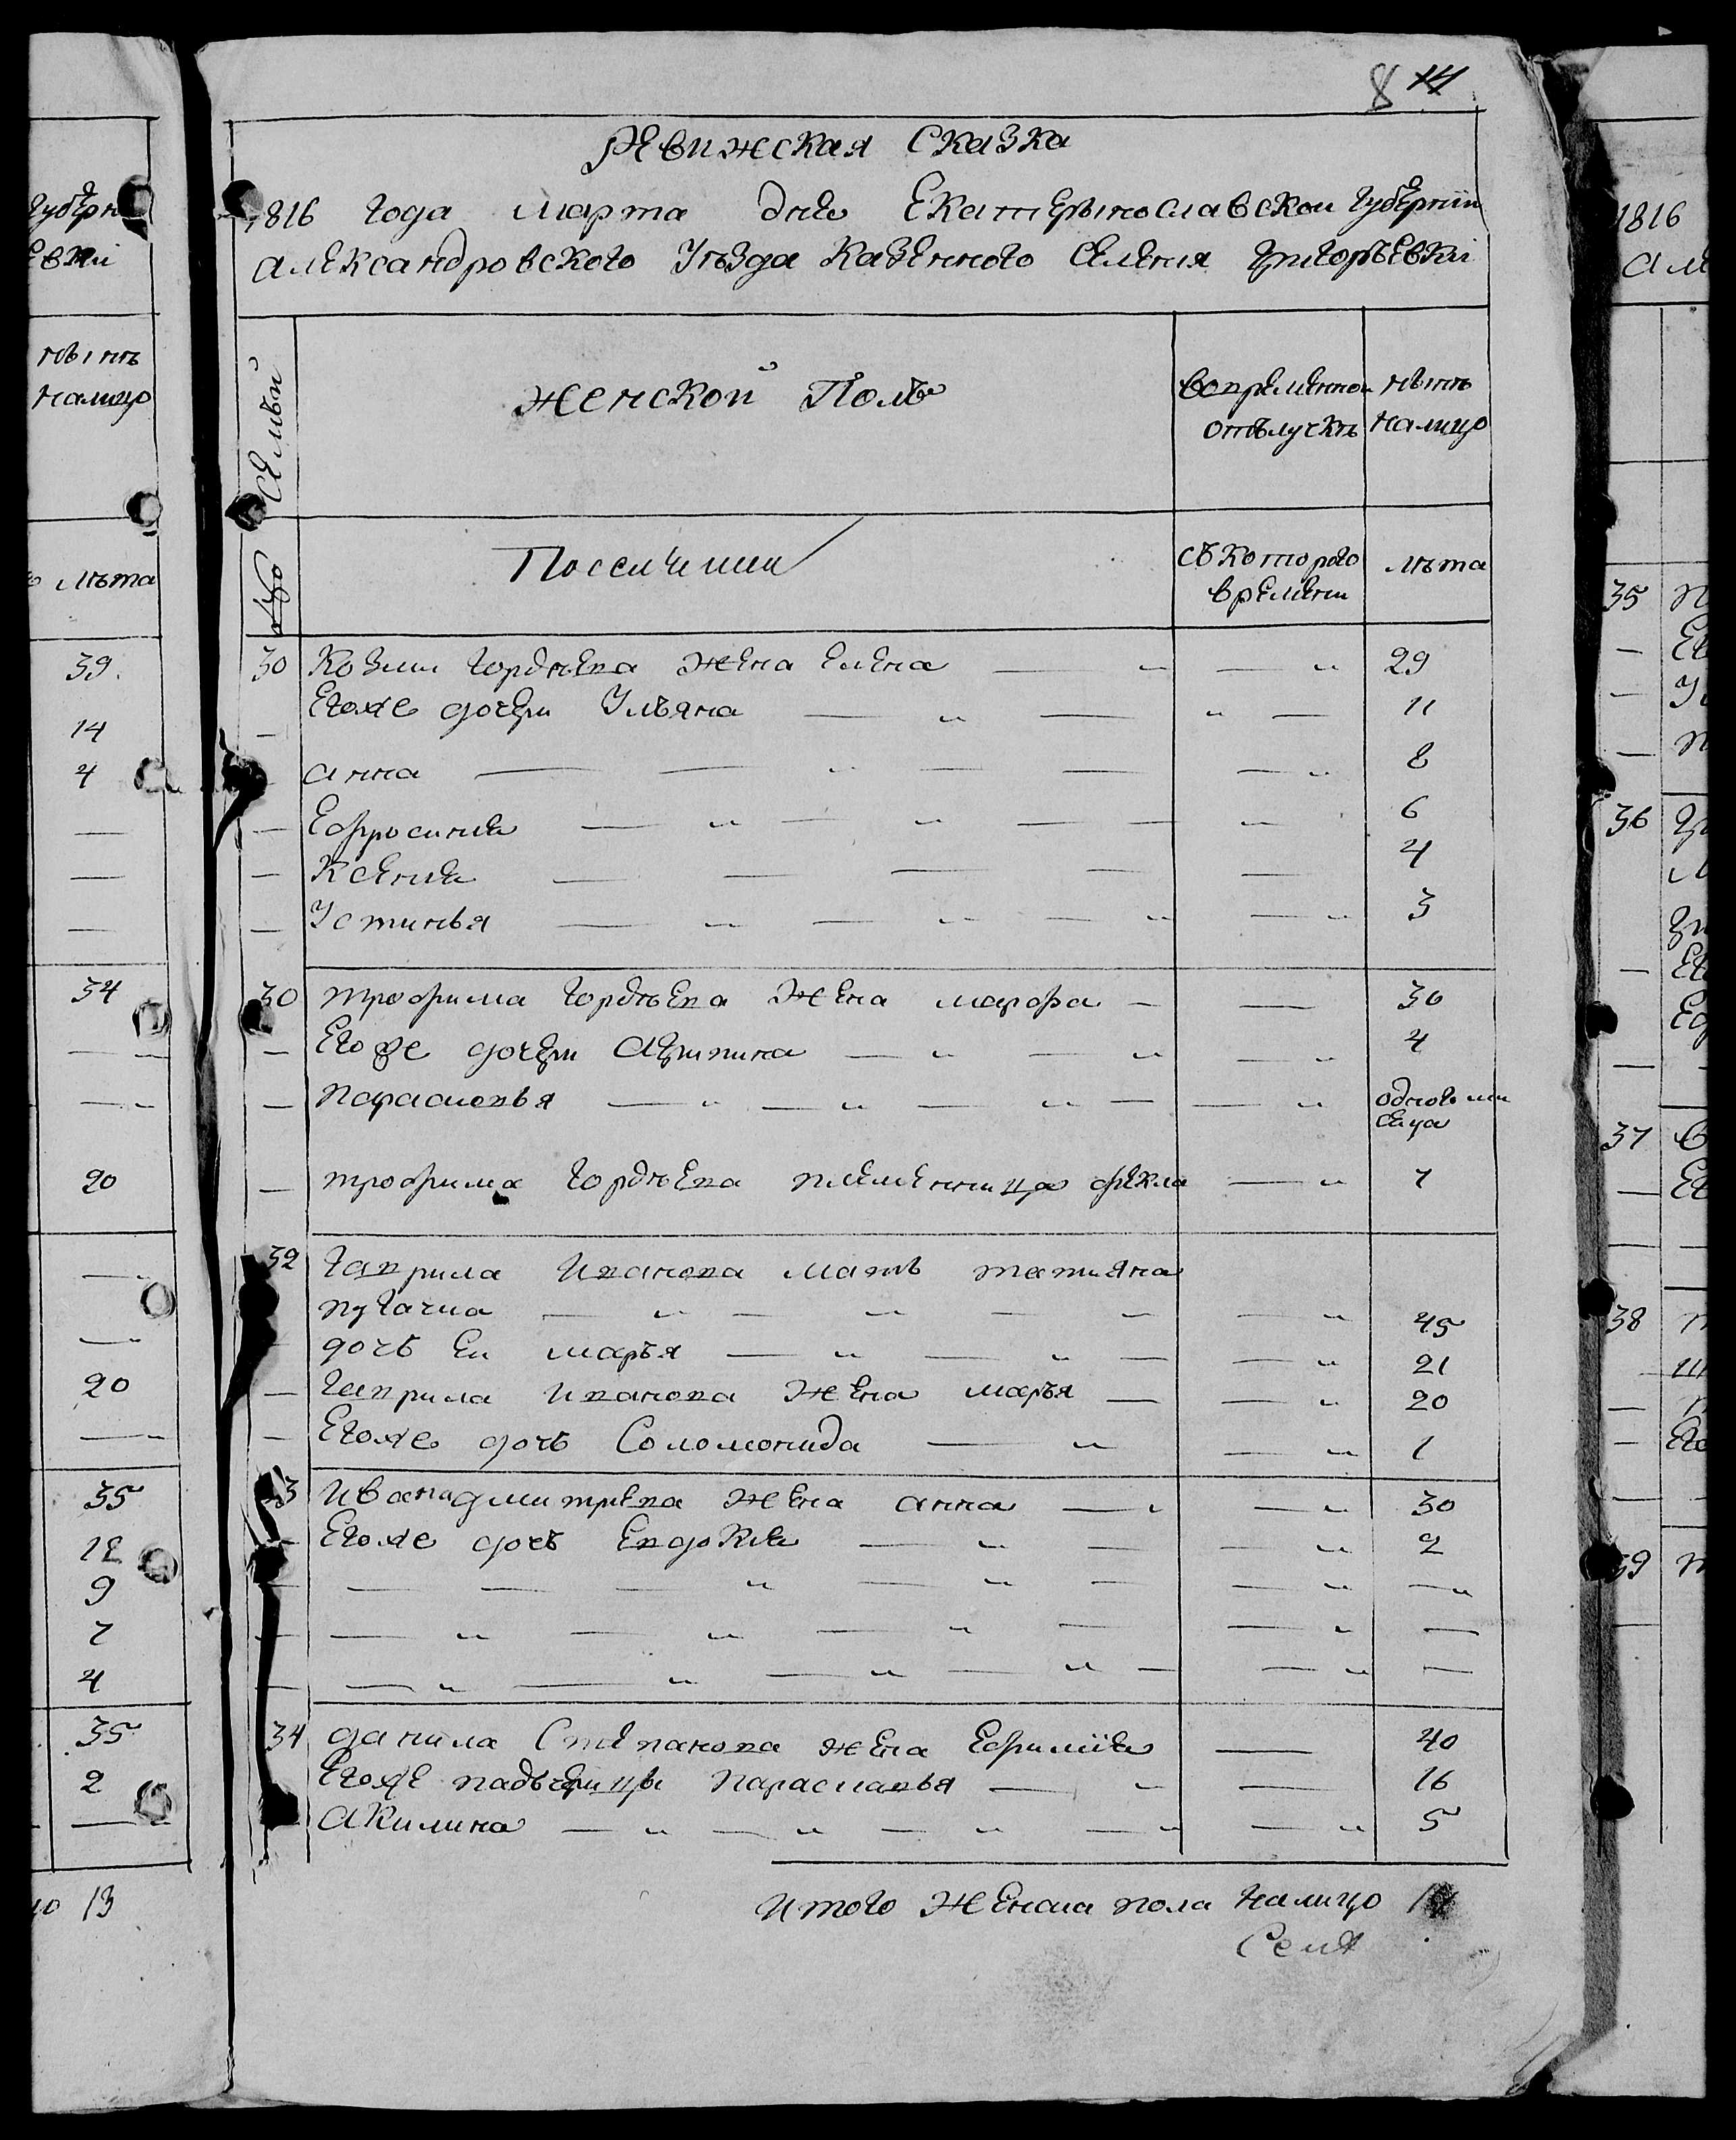 8 14
Ревижская Сказка
1816 года марта дня Екатерѣинославской Губернїи
александровского Уѣзда Казенного Селения григорьевки
Семьи
женской Полъ
Вовременной отълучкѣ
нѣнѣ налицо
Посселиении
съкоторого времени
лѣта
30 Козми гордѣева жена Елена — „ — „ 29
Егоже дочери Ульяна — „ — „ — 11
— анна — — „ — — — „ 8
— Ефросиния — „ — „ — — „ 6
— Ксения — — — — — 4
— Устинья — „ — „ — „ — „ 3
30 трофима гордѣева жена марфа — — 30
— Егоже дочери Агрипина — „ — „ — „ 4
— параскевья — „ — „ — „ — — „ одного ме
сеца
— трофима гордѣева племенница фекла — „ 7
32 гаврила иванова мать татияна
пугачиа — „ — „ — „ — „ 45
дочь Еи марья — „ — „ — — „ 21
— гаврила иванова жена марья — — „ 20
— Егоже дочь Соломонида — „ — „ 1
33 Ивана дмитрева жена анна — „ — „ 30
— Егоже дочь Евдокия — „ — — „ 2
— — — — „ — „ — — „ — „
— — „ — „ — „ — — „ —
— — „ — „ — „ — „ — — „ —
34 данила Степанова жена Ефимїя — 40
Егоже падъчерицы Парасковья — „ — 16
акилина — „ — „ — „ — „ — „ 5
итого Женска пола налицо
губерн
евки
нѣинѣ
налицо
лѣта
39.
14
4
—
—
—
34
— —
— „
20
— „
— „
20
— „
35
12
9
7
4
35
2
—
13
1816
35
36
37
38
39